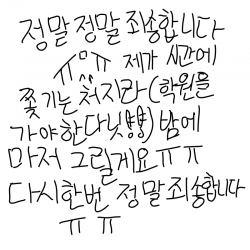 정말 정말 죄송합니다
ㅠㅁㅠ 제가 시간에
쫓기는 처지라 (학원을
가야한다닛!!) 밤에
마저 그릴게요ㅠㅠ
다시한번 정말죄송합니다
ㅠㅠ